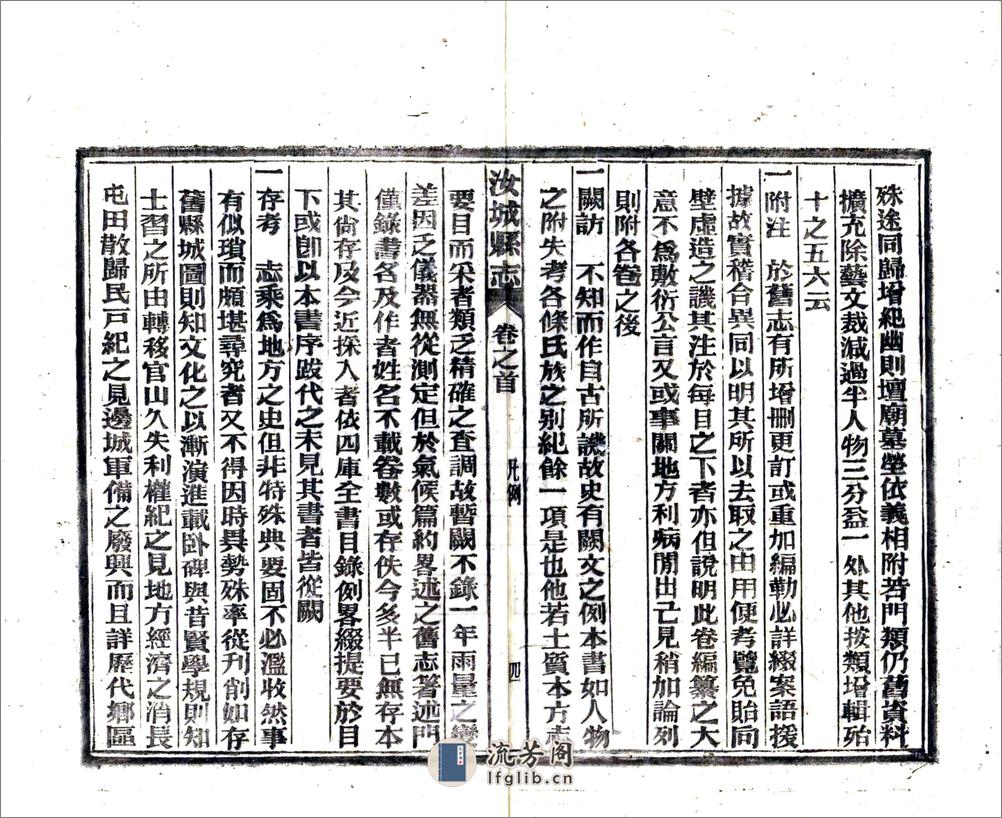 殊途同歸增紀幽則壇廟墓塋依義相附若門類仍舊資料
擴充除藝文裁減過半人物三分益一外其他按類增輯殆
十之五六云
一附注　於舊志有所增刪更訂或重加編勒必詳綴案語援
據故實稽合異同以明其所以去取之由用便考覽免貽向
壁虛造之譏其注於每目之下者亦但說明此卷編纂之大
意不爲敷衍公言又或事關地方利病間出己見稍加論列
則附各卷之後
一闕訪　不知而作自古所譏故史有闕文之例本書如人物
之附失考各條氏族之別紀餘一項是也他若土質本方志
汝城縣志　卷之首　凡例　四
要目而采者類乏精確之查調故暫闕不錄一年雨量之變
差因乏儀器無從測定但於氣候篇約畧述之舊志箸述門
僅錄書名及作者姓名不載卷數或存佚今多半已無存本
其尙存及今近採入者依四庫全書目錄例畧綴提要於目
下或卽以本書序跋代之未見其書者皆從闕
一存考　志乘爲地方之史但非特殊典要固不必濫收然事
有似瑣而頗堪尋究者又不得因時異勢殊率從刋削如存
舊縣城圖則知文化之以漸演進載臥碑與昔賢學規則知
士習之所由轉移官山久失利權紀之見地方經濟之消長
屯田散歸民戸紀之見邊城軍備之廢興而且詳歷代鄉區
流芳阁
lfglib.cn